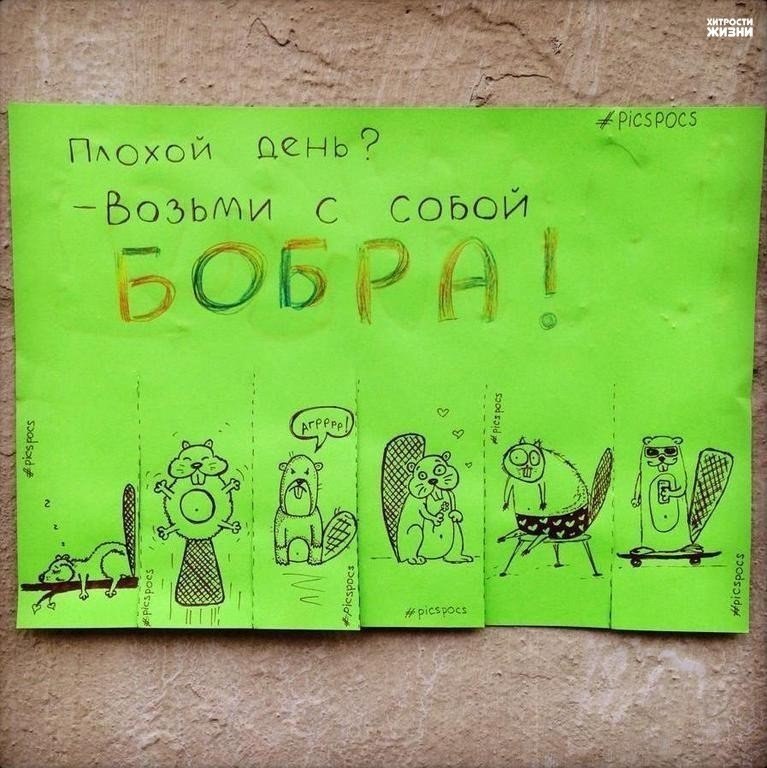 ХИТРОСТИ
ЖИЗНИ
#PICSPOCS
Плохой день?
-Возьми с собой
БОБРА!
#picspocs
z
z
z
#picspocs
АГРРРР!
#picspocs
#picspocs
#picspocs
#picspocs